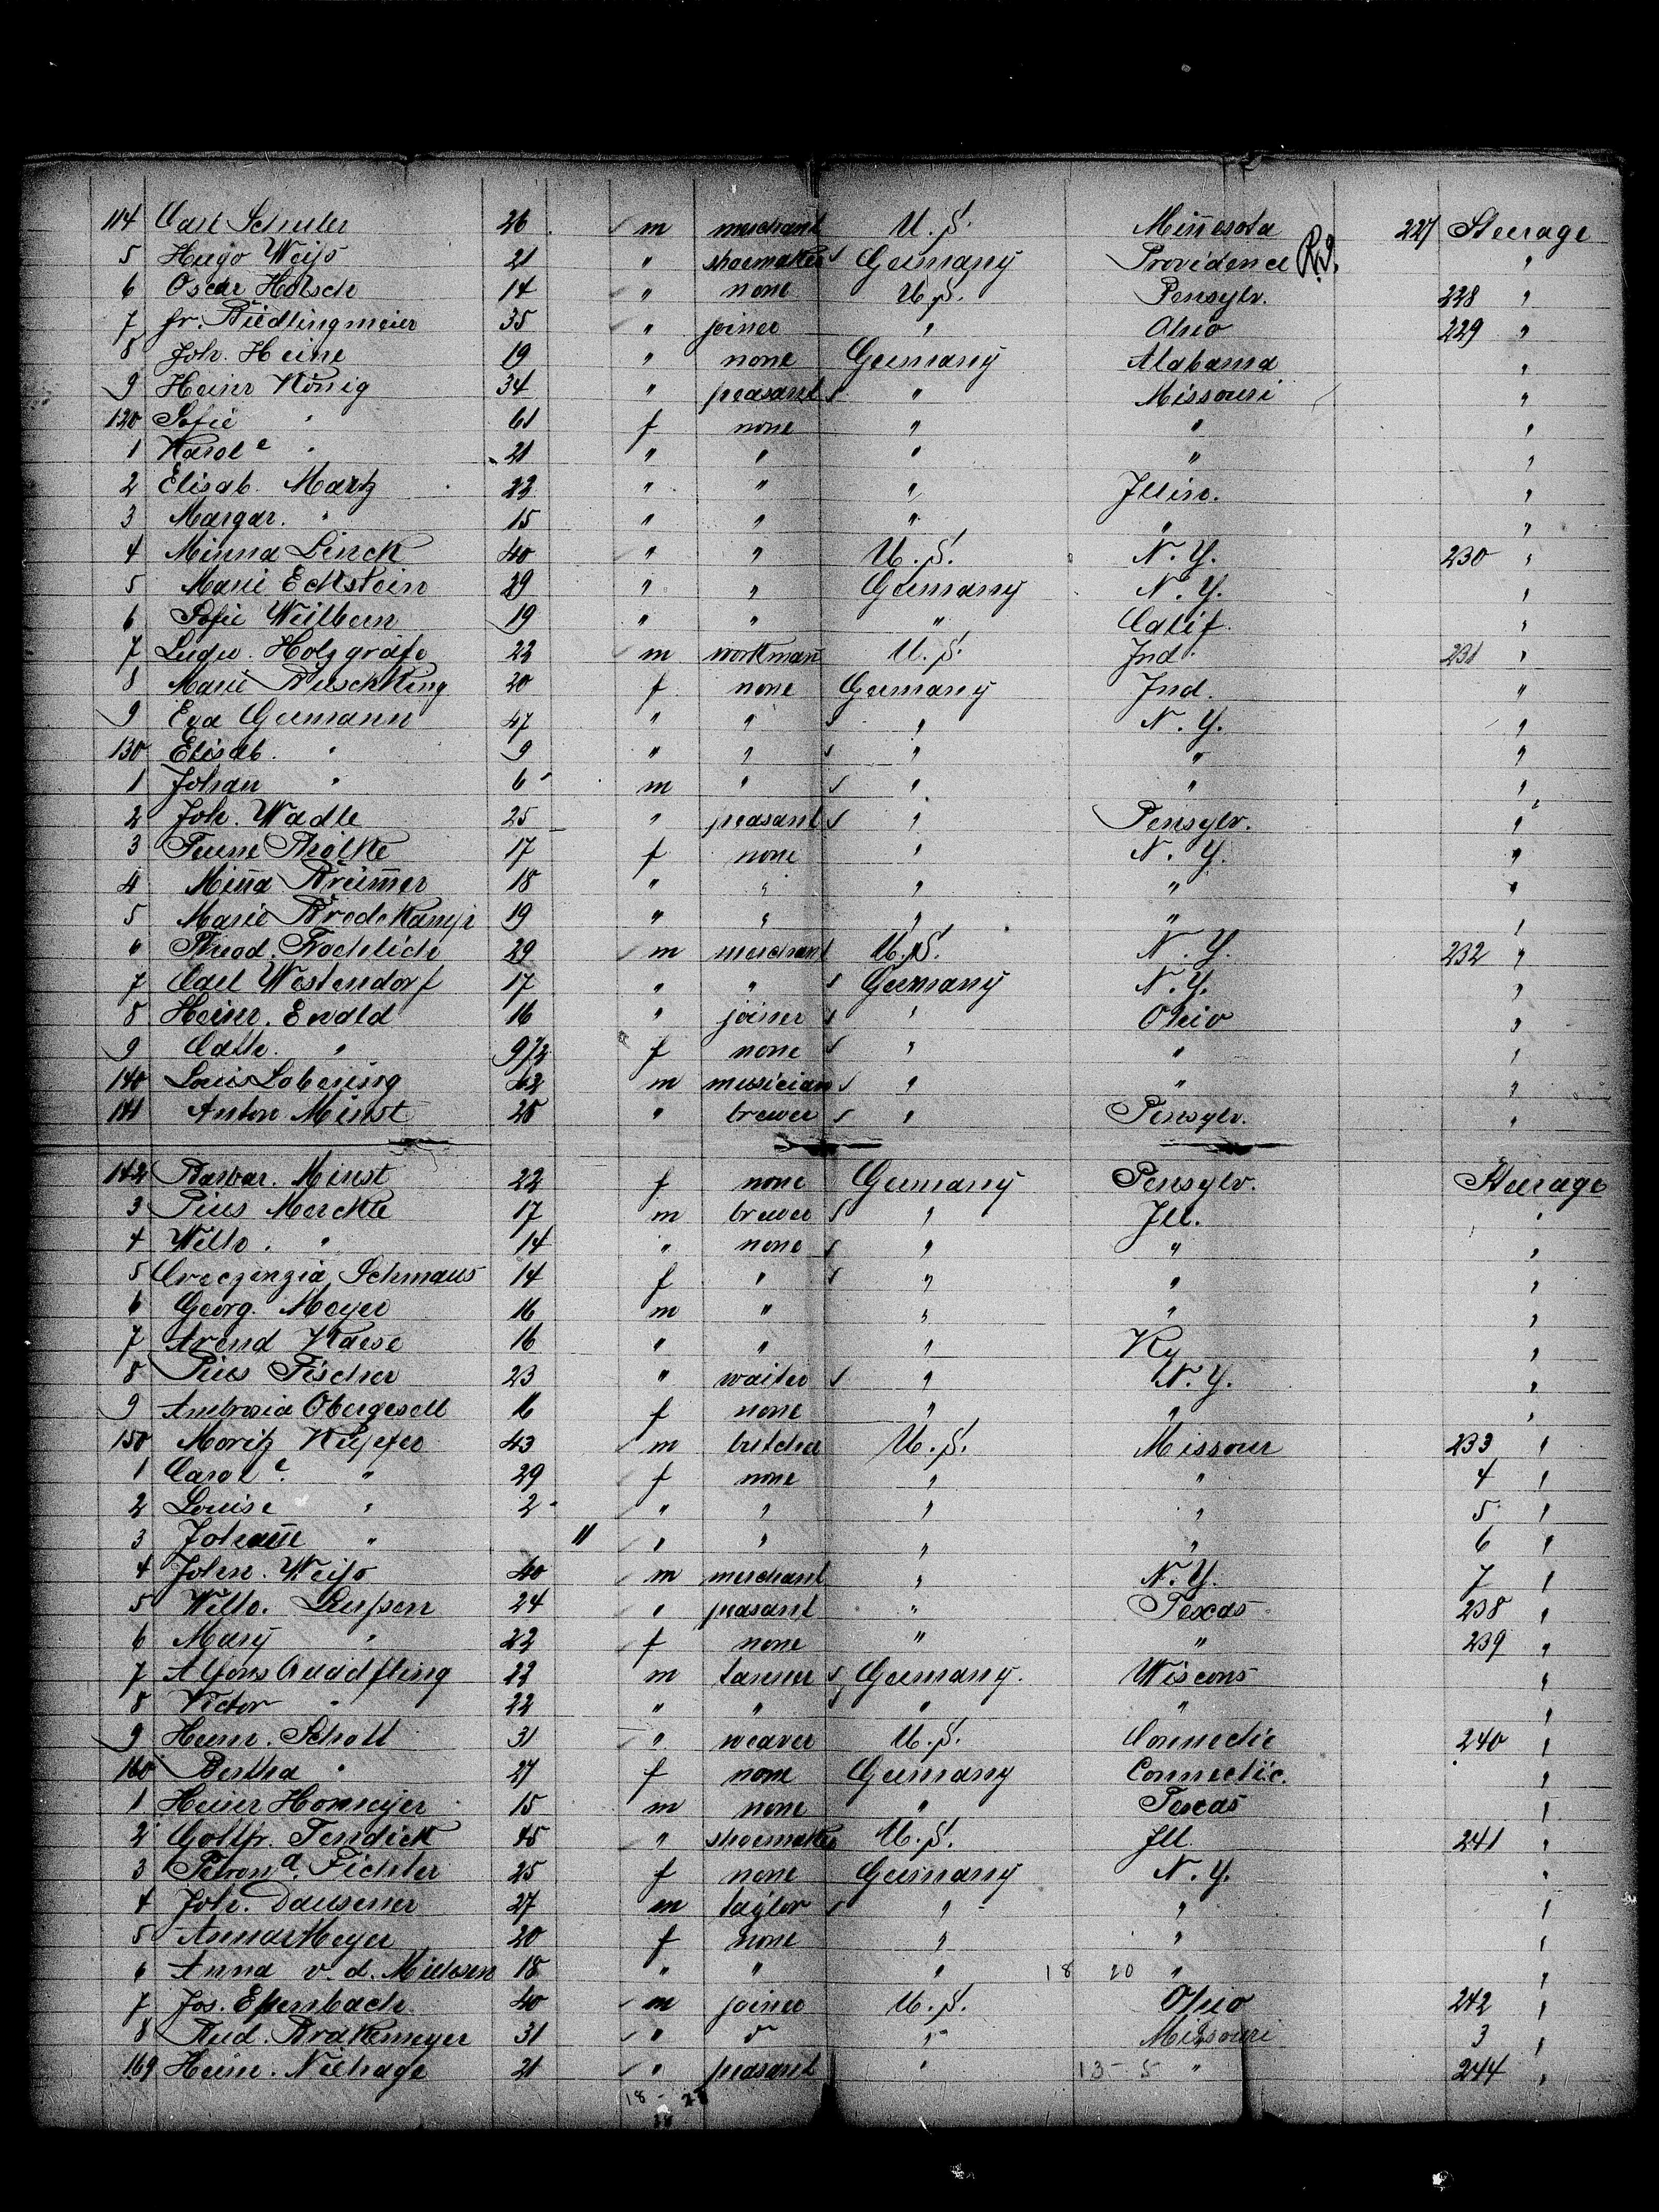 114 Carl Schuler 26 m merchant U.S. Minnesota 227 Steerage
5 Hugo Weiß 21 " shoemaker Germany Providence R.I. "
6 Oscar Holsch 14 " none U.S. Pensylv. 228 "
7 fr. Biedlingmeier 35 " joiner " Ohio 229 "
8 Joh. Heine 19 " none Germany Alabama "
9 Heinr König 34 " peasant " Missouri "
120 Sofie " 61 f none " " "
1 Karole " 21 " " " " "
2 Elisab. Martz 22 " " " Illin. "
3 Margar. " 15 " " " " "
4 Minna Linck 40 " " U.S. N.Y. 230 "
5 Marie Eckstein 29 " " Germany N.Y. "
6 Sofie 19 " " " Calif. "
7 Ludw. Holzgräfe 22 m workman U.S. Ind. 231 "
8 Marie Buschking 20 f none Germany Ind. "
9 Eva Germann 47 " " " N.Y. "
130 Elisab. " 9 " " " " "
1 Johan " 6 m " " " "
2 Joh. Wadle 25 " peasant " Pensylv. "
3 17 f none " N.Y. "
4 Miña 18 " " " " "
5 Marie Bredekamp 19 " " " " "
6 Theod. Froehlich 29 m merchant U.S. N.Y. 232 "
7 Carl Westendorf 17 " " Germany N.Y. "
8 Heinr. Ewald 16 " joiner " Ohio "
9 Cath. " 9/2 f none " " "
140 Louis Lobening 42 m musician " " "
141 Anton Minst 28 " brewer " Pensylv. "
142 Barbar. Minst 22 f none Germany Pensylv. Steerage
3 Pius Merckle 17 m brewer " Ill. "
4 Wilh. " 14 " none " " "
5 Creczenzia Schmaus 14 f " " " "
6 Georg. Meyer 16 m " " " "
7 Arend Kaese 16 " " " Ky "
8 Pius Fischer 23 " waiter " N.Y. "
9 Ambrosia Obergesell 16 f none " " "
150 Moritz Küpfer 43 m butcher U.S. Missour 233 "
1 Carole. " 29 f none " " 4 "
2 Louise " 2 " " " " 5 "
3 Johañe " 11 " " " " 6 "
4 John. Weiß 40 m merchant " N.Y. 7 "
5 Wilh. 24 " peasant " Texas 238 "
6 Mary " 22 f none " " 239 "
7 Alfons 22 m tanner Germany. Wiscons "
8 Victor " 22 " " " " "
9 Heinr. Scholl 31 " weaver U.S. Connectic 240 "
160 Bertha " 27 f none Germany Connectic. "
1 Heinr Homeyer 15 m none " Texas "
2 Gottfr. Tendick 45 " shoemaker U.S. Ill. 241 "
3 Petrona. Fichter 25 f none Germany N.Y. "
4 Joh. Dausener 27 m taylor " " "
5 Anna Meyer 20 f none " " "
6 Anna v. d. 18 " " " 18 20 " "
7 Jos. Epernbach. 40 m joiner U.S. Ohio 242 "
8 Rud. Brakemeyer 31 " " " Missouri 3 "
169 Heinr. Niehage 21 " peasant " 13 - 5 " 244 "
18 - 28